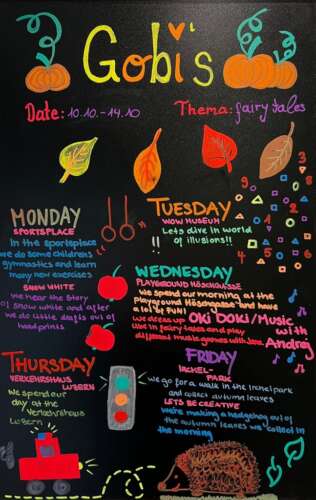 Gobi's
Date: 10.10.-14.10
Thema: fairy tales
MONDAY
SPORTSPLACE
In the sportsplace
we do some childrens
gymnastics and learn
many new exercises
SNOW WHITE
we hear the story
of snow white and after
we do little crafts out of
handprints
TUESDAY
WOW MUSEUM
Lets dive in world
of illusions!!
!!
WEDNESDAY
PLAYGROUND HÖSCHGASSE
We spend our morning at the
Playground Höschgasse and have
a lot of FUN!
OKI DOKI/Music
with
Andrej
we dress up
like in fairy tales and play
different music games with
THURSDAY
VERKEHRSHAUS
LUZERN
We spend our
day at the
Verkehrshaus
Luzern
FRIDAY
IRCHEL-
PARK
we go for a walk in the Irchelpark
and collect autumn leaves
LETS BE CREATIVE
we're making a hedgehog out of
the autumn leaves we collect in
the morning